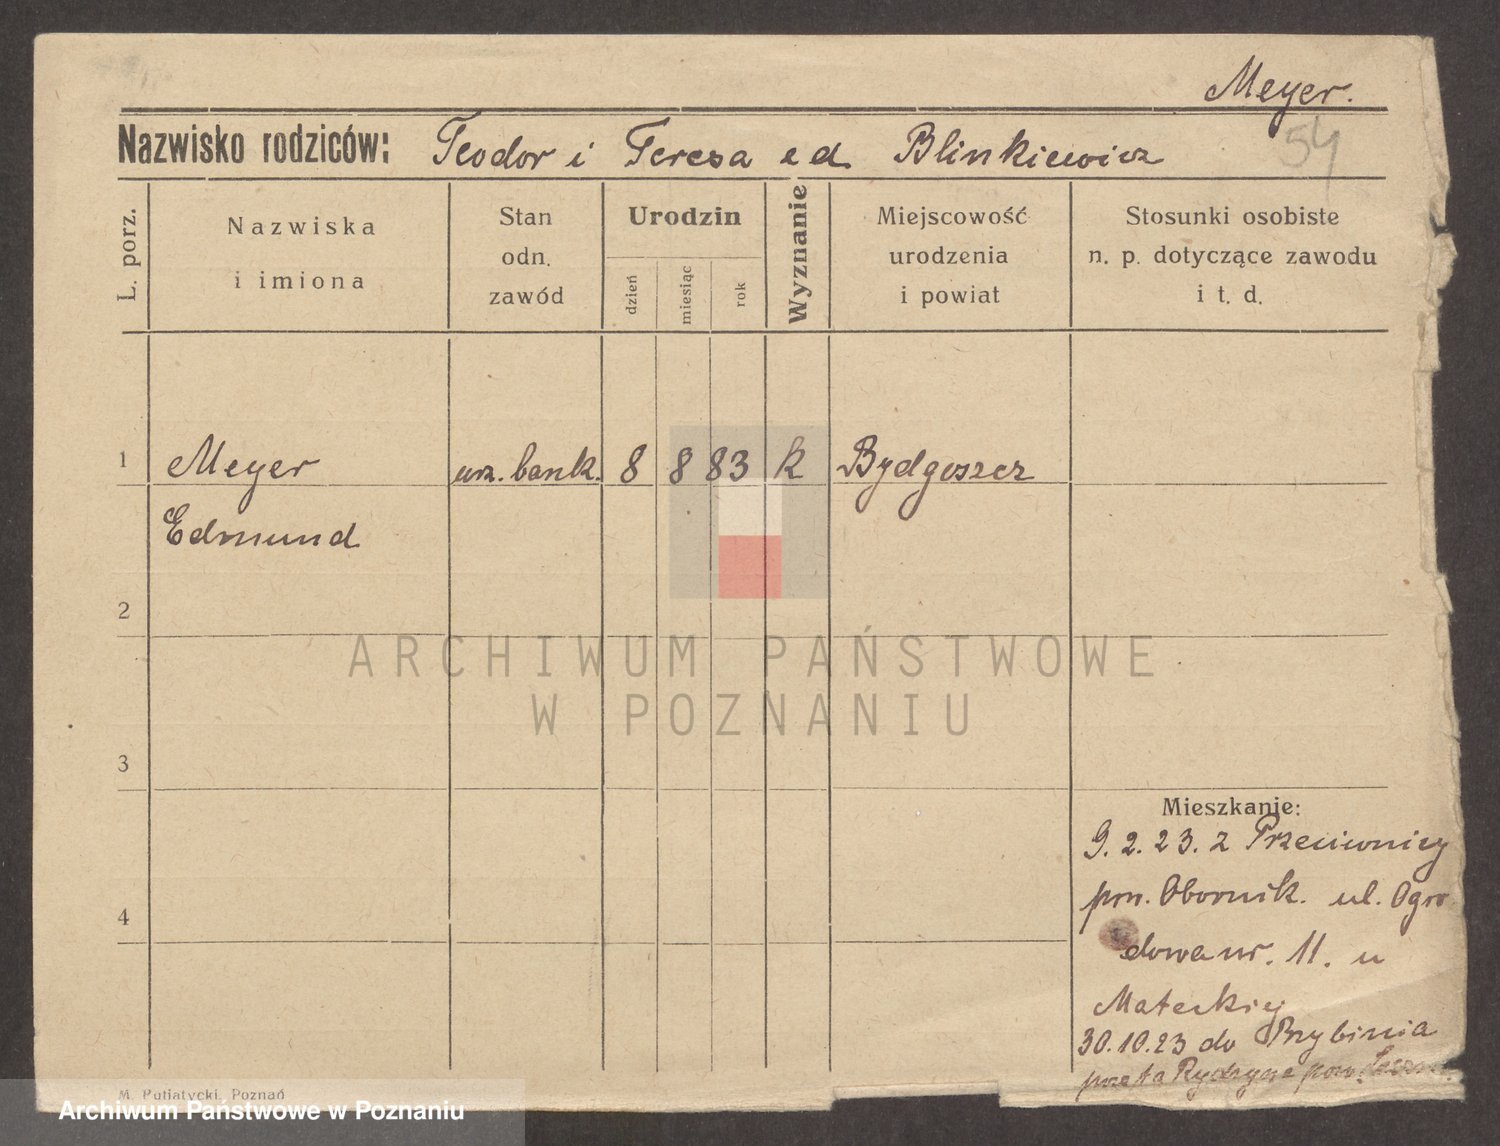 Meyer.
54
Nazwisko rodziców: Teodor i Teresa z d. Blinkiewicz
L. porz.
Nazwiska
i imiona
Stan
odn.
zawód
Urodzin
dzień
miesiąc
rok
Wyznanie
Miejscowość
urodzenia
i powiat
Stosunki osobiste
n. p. dotyczące zawodu
i t. d.
1 Meyer urz. bank. 8 8 83 k Bydgoszcz
Edmund
2
ARCHIWUM PAŃSTWOWE
W POZNANIU
3
Mieszkanie:
9. 2. 23. z
pow. Obornik. ul. Ogro
4
dowa nr. 11. u
Mateckiej
30.10.23 do Przybinia
poczta Rydzyna pow.
M. Putiatycki, Poznań
Archiwum Państwowe w Poznaniu